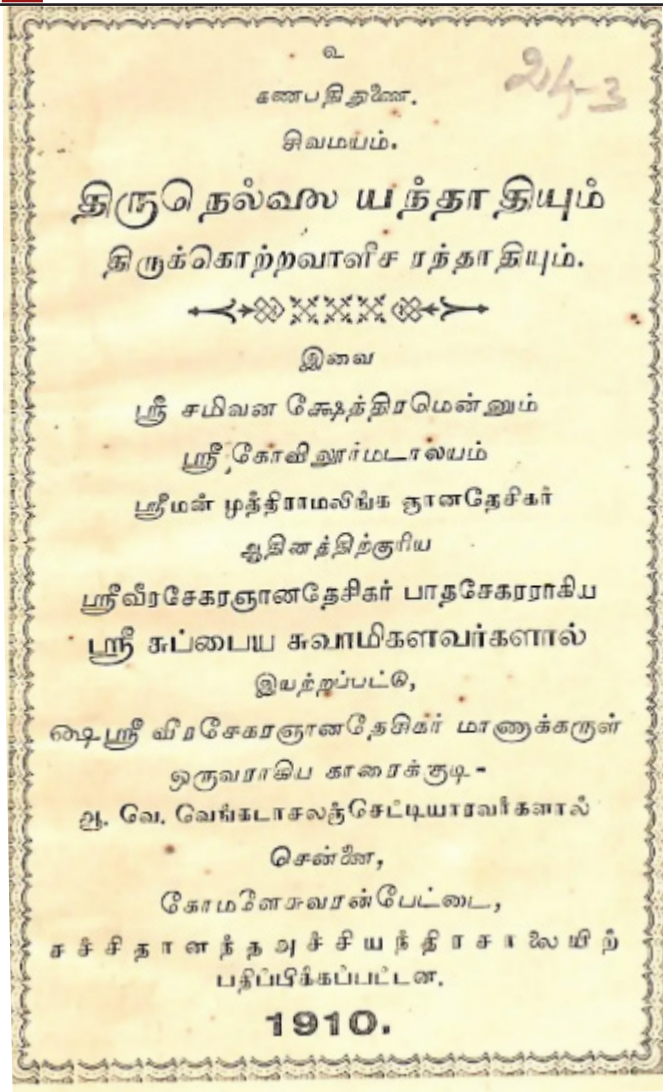 உ
24-3
கணபதிதுணை.
சிவமயம்.
திருநெல்லை யந்தாதியும்
திருக்கொற்றவாளீச ரந்தாதியும்.
இவை
ஸ்ரீ சமிவன க்ஷேத்திரமென்னும்
ஸ்ரீ கோவிலூர்மடாலயம்
ஸ்ரீமன் முத்திராமலிங்க ஞானதேசிகர்
ஆதினத்திற்குரிய
ஸ்ரீவீரசேகரஞானதேசிகர் பாதசேகரராகிய
ஸ்ரீ சுப்பைய சுவாமிகளவர்களால்
இயற்றப்பட்டு,
௸ ஸ்ரீ வீரசேகரஞானதேசிகர் மாணாக்கருள்
ஒருவராகிய காரைக்குடி -
ஆ. வே. வேங்கடாசலஞ்செட்டியாரவர்களால்
சென்னை,
கோமளேசுவரன்பேட்டை,
சச்சிதானந்தஅச்சியந்திரசாலையிற்
பதிப்பிக்கப்பட்டன.
1910.